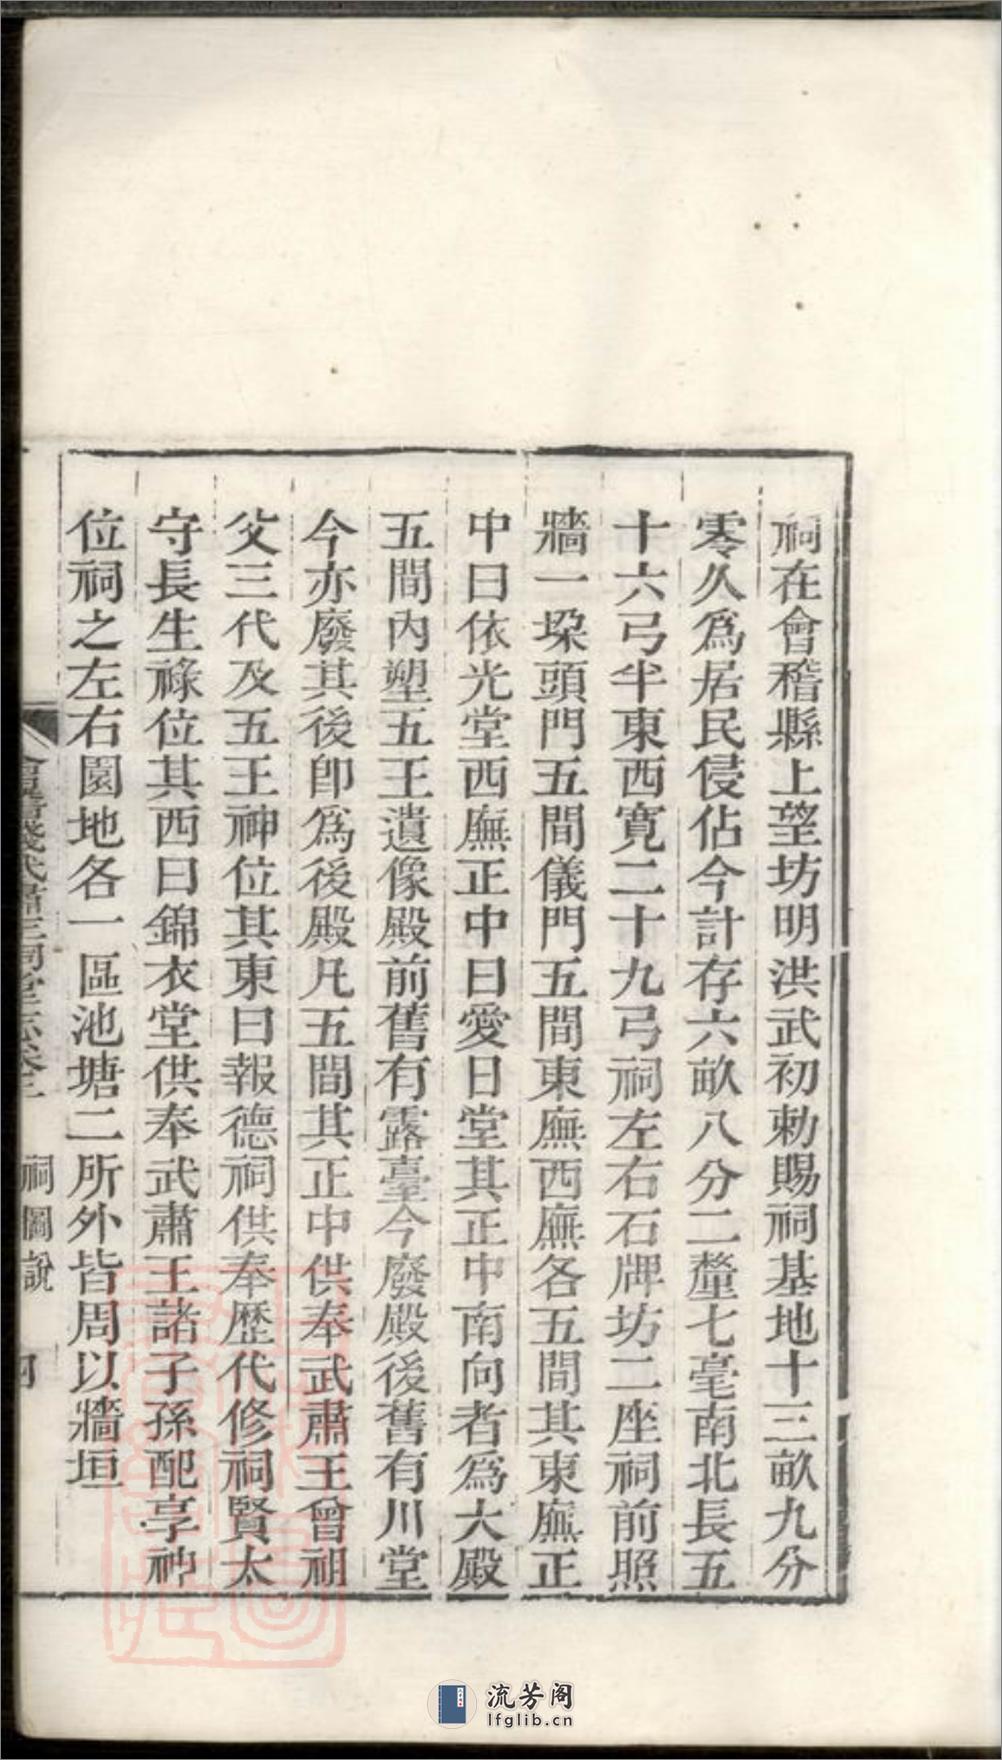 祠在會稽縣上望坊明洪武初勅賜祠基地十三畝九分
零久爲居民侵佔今計存六畝八分二釐七毫南北長五
十六弓半東西寬二十九弓祠左右石牌坊二座祠前照
牆一垜頭門五間儀門五間東廡西廡各五間其東廡正
中曰依光堂西廡正中曰愛日堂其正中南向者爲大殿
五間內塑五王遺像殿前舊有露臺今廢殿後舊有川堂
今亦廢其後卽爲後殿凡五間其正中供奉武肅王曾祖
父三代及五王神位其東曰報德祠供奉歷代修祠賢太
守長生祿位其西曰錦衣堂供奉武肅王諸子孫配享神
位祠之左右園地各一區池塘二所外皆周以牆垣
祠圖說
四
流芳阁
lfglib.cn